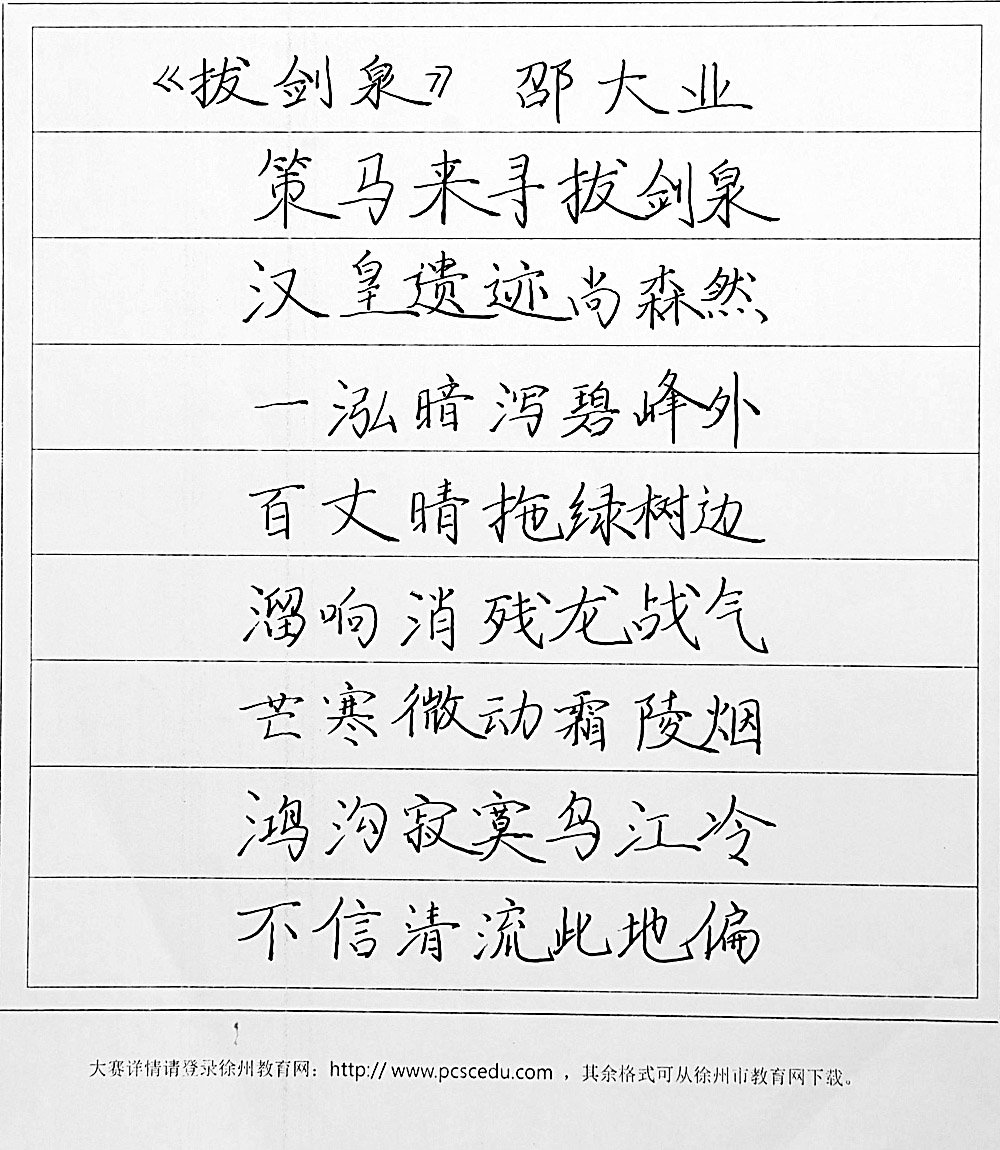 《拔剑泉》 邵大业
策马来寻拔剑泉
汉皇遗迹尚森然
一泓暗泻碧峰外
百丈晴拖绿树边
溜响消残龙战气
芒寒微动霜陵烟
鸿沟寂寞乌江冷
不信清流此地偏
大赛详情请登录徐州教育网：http://www.pcscedu.com ，其余格式可从徐州市教育网下载。